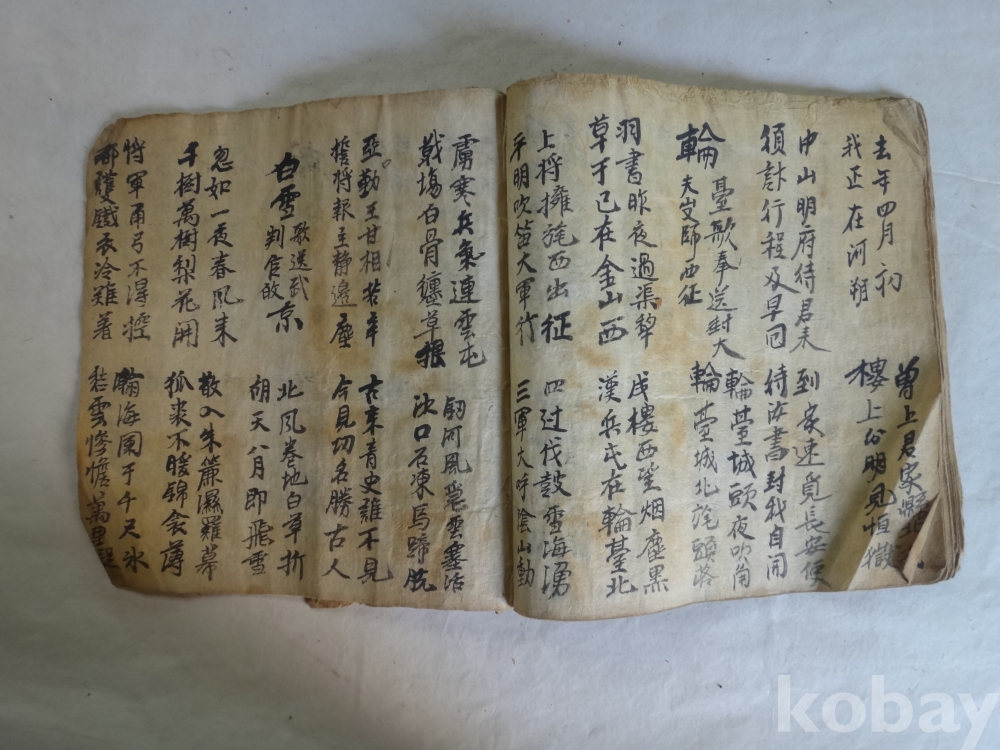 去年四月初
我正在河朔
曾上君家縣
樓上分明見恒嶽
中山明府待君來
須計行程及早回
到家速覓長安使
待汝書封我自開
輪臺歌奉送封大
夫出師西征
輪臺城頭夜吹角
輪臺城北旄頭落
羽書昨夜過渠犂
草于已在金山西
戍樓西望烟塵黑
漢兵屯在輪臺北
上將擁旄西出征
平明吹笛大軍行
四邊伐鼓雪海湧
三軍大呼陰山動
虜寒兵氣連雲屯
戰場白骨纏草根
劒河風急雲塞活
沙口石凍馬蹄脫
亞勤王甘相苦辛
誓將報主靜邊塵
古來青史誰不見
今見功名勝古人
白雪歌送武
判官故京
北風卷地白草折
胡天八月即飛雪
忽如一夜春風來
千樹萬樹梨花開
散入朱簾濕羅幕
狐裘不暖錦衾薄
將軍角弓不得控
都護鐵衣冷難著
瀚海闌干千尺氷
愁雲慘憺萬里
kobay